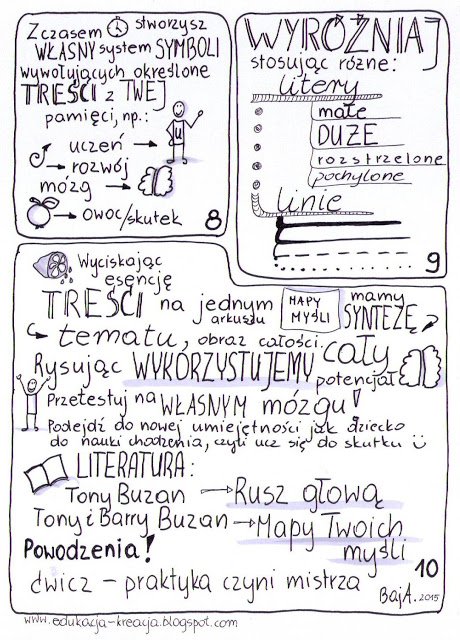 Z czasem stworzysz
WŁASNY system SYMBOLI
wywołujących określone
TREŚCI z TWEJ
pamięci, np.:
u
uczeń →
→ rozwój
mózg →
→ owoc/skutek
8
WYRÓŻNIAJ
stosując różne:
litery
małe
DUŻE
rozstrzelone
pochylone
linie
9
Wyciskając
esencję
TREŚCI na jednym
arkuszu
MAPY
MYŚLI
mamy
SYNTEZĘ
tematu, obraz całości.
Rysując WYKORZYSTUJEMY cały
potencjał
Przetestuj na WŁASNYM mózgu!
Podejdź do nowej umiejętności jak dziecko
do nauki chodzenia, czyli ucz się do skutku
LITERATURA:
Tony Buzan → Rusz głową
Tony i Barry Buzan → Mapy Twoich
myśli
Powodzenia!
10
ćwicz – praktyka czyni mistrza
BajA. 2015
www.edukacja-kreacja.blogspot.com